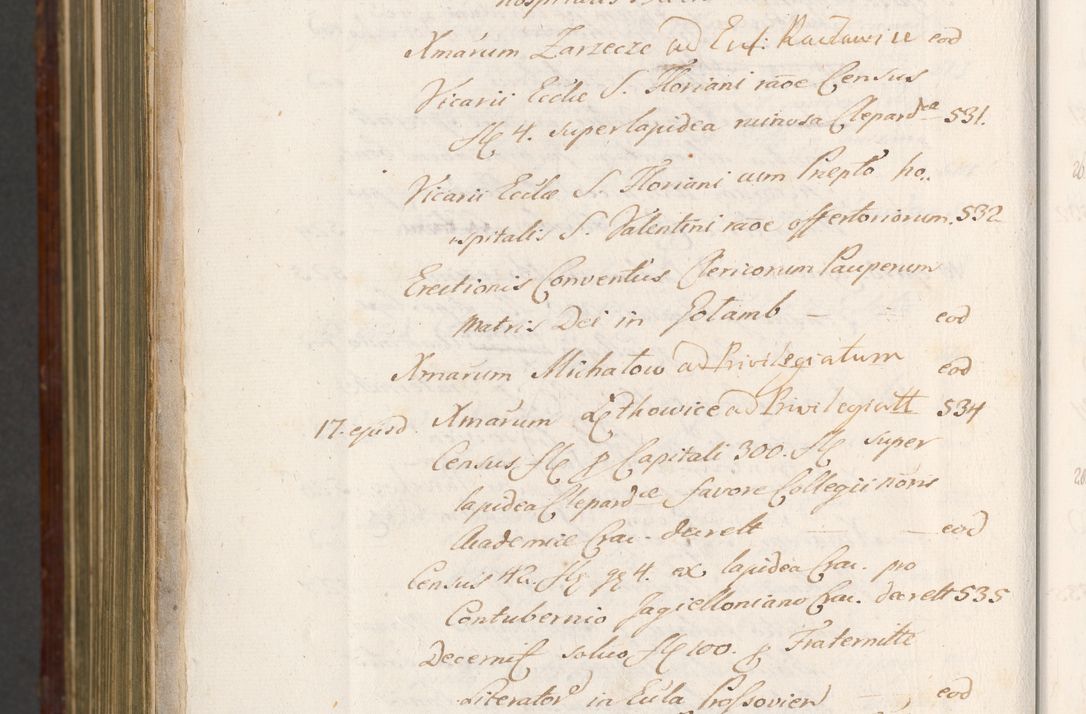 Xmarum Zarzecze ad Eccl: Racławice eod
Vicarii Eccliæ S. Floriani raõe Census
fl 4. super lapidea ruinosa Clepardca 531.
Vicarii Ecclæ S. Floriani cum Præpto ho..
spitalis S. Valentini raõe offertoriorum 532
Erectionis Conventus Clericorum Pauperum
Matris Dei in Gotamb — eod
Xmarum Michałow ad Privilegiatum eod
17. ejusd. Xmarum Lthowice ad Privilegiatt 534
Census fl p Capitali 300. fl super
lapidea Clepardcæ favore Collegii noris
Academiæ Crac. decrett — — eod
Census fl qr 4. ex lapidea Crac. pro
Contubernio Jagielloniano Crac. decrett 535
Decernit soluo fl 100. p Fraternitte
Literator in Eccla Prossovien — eod